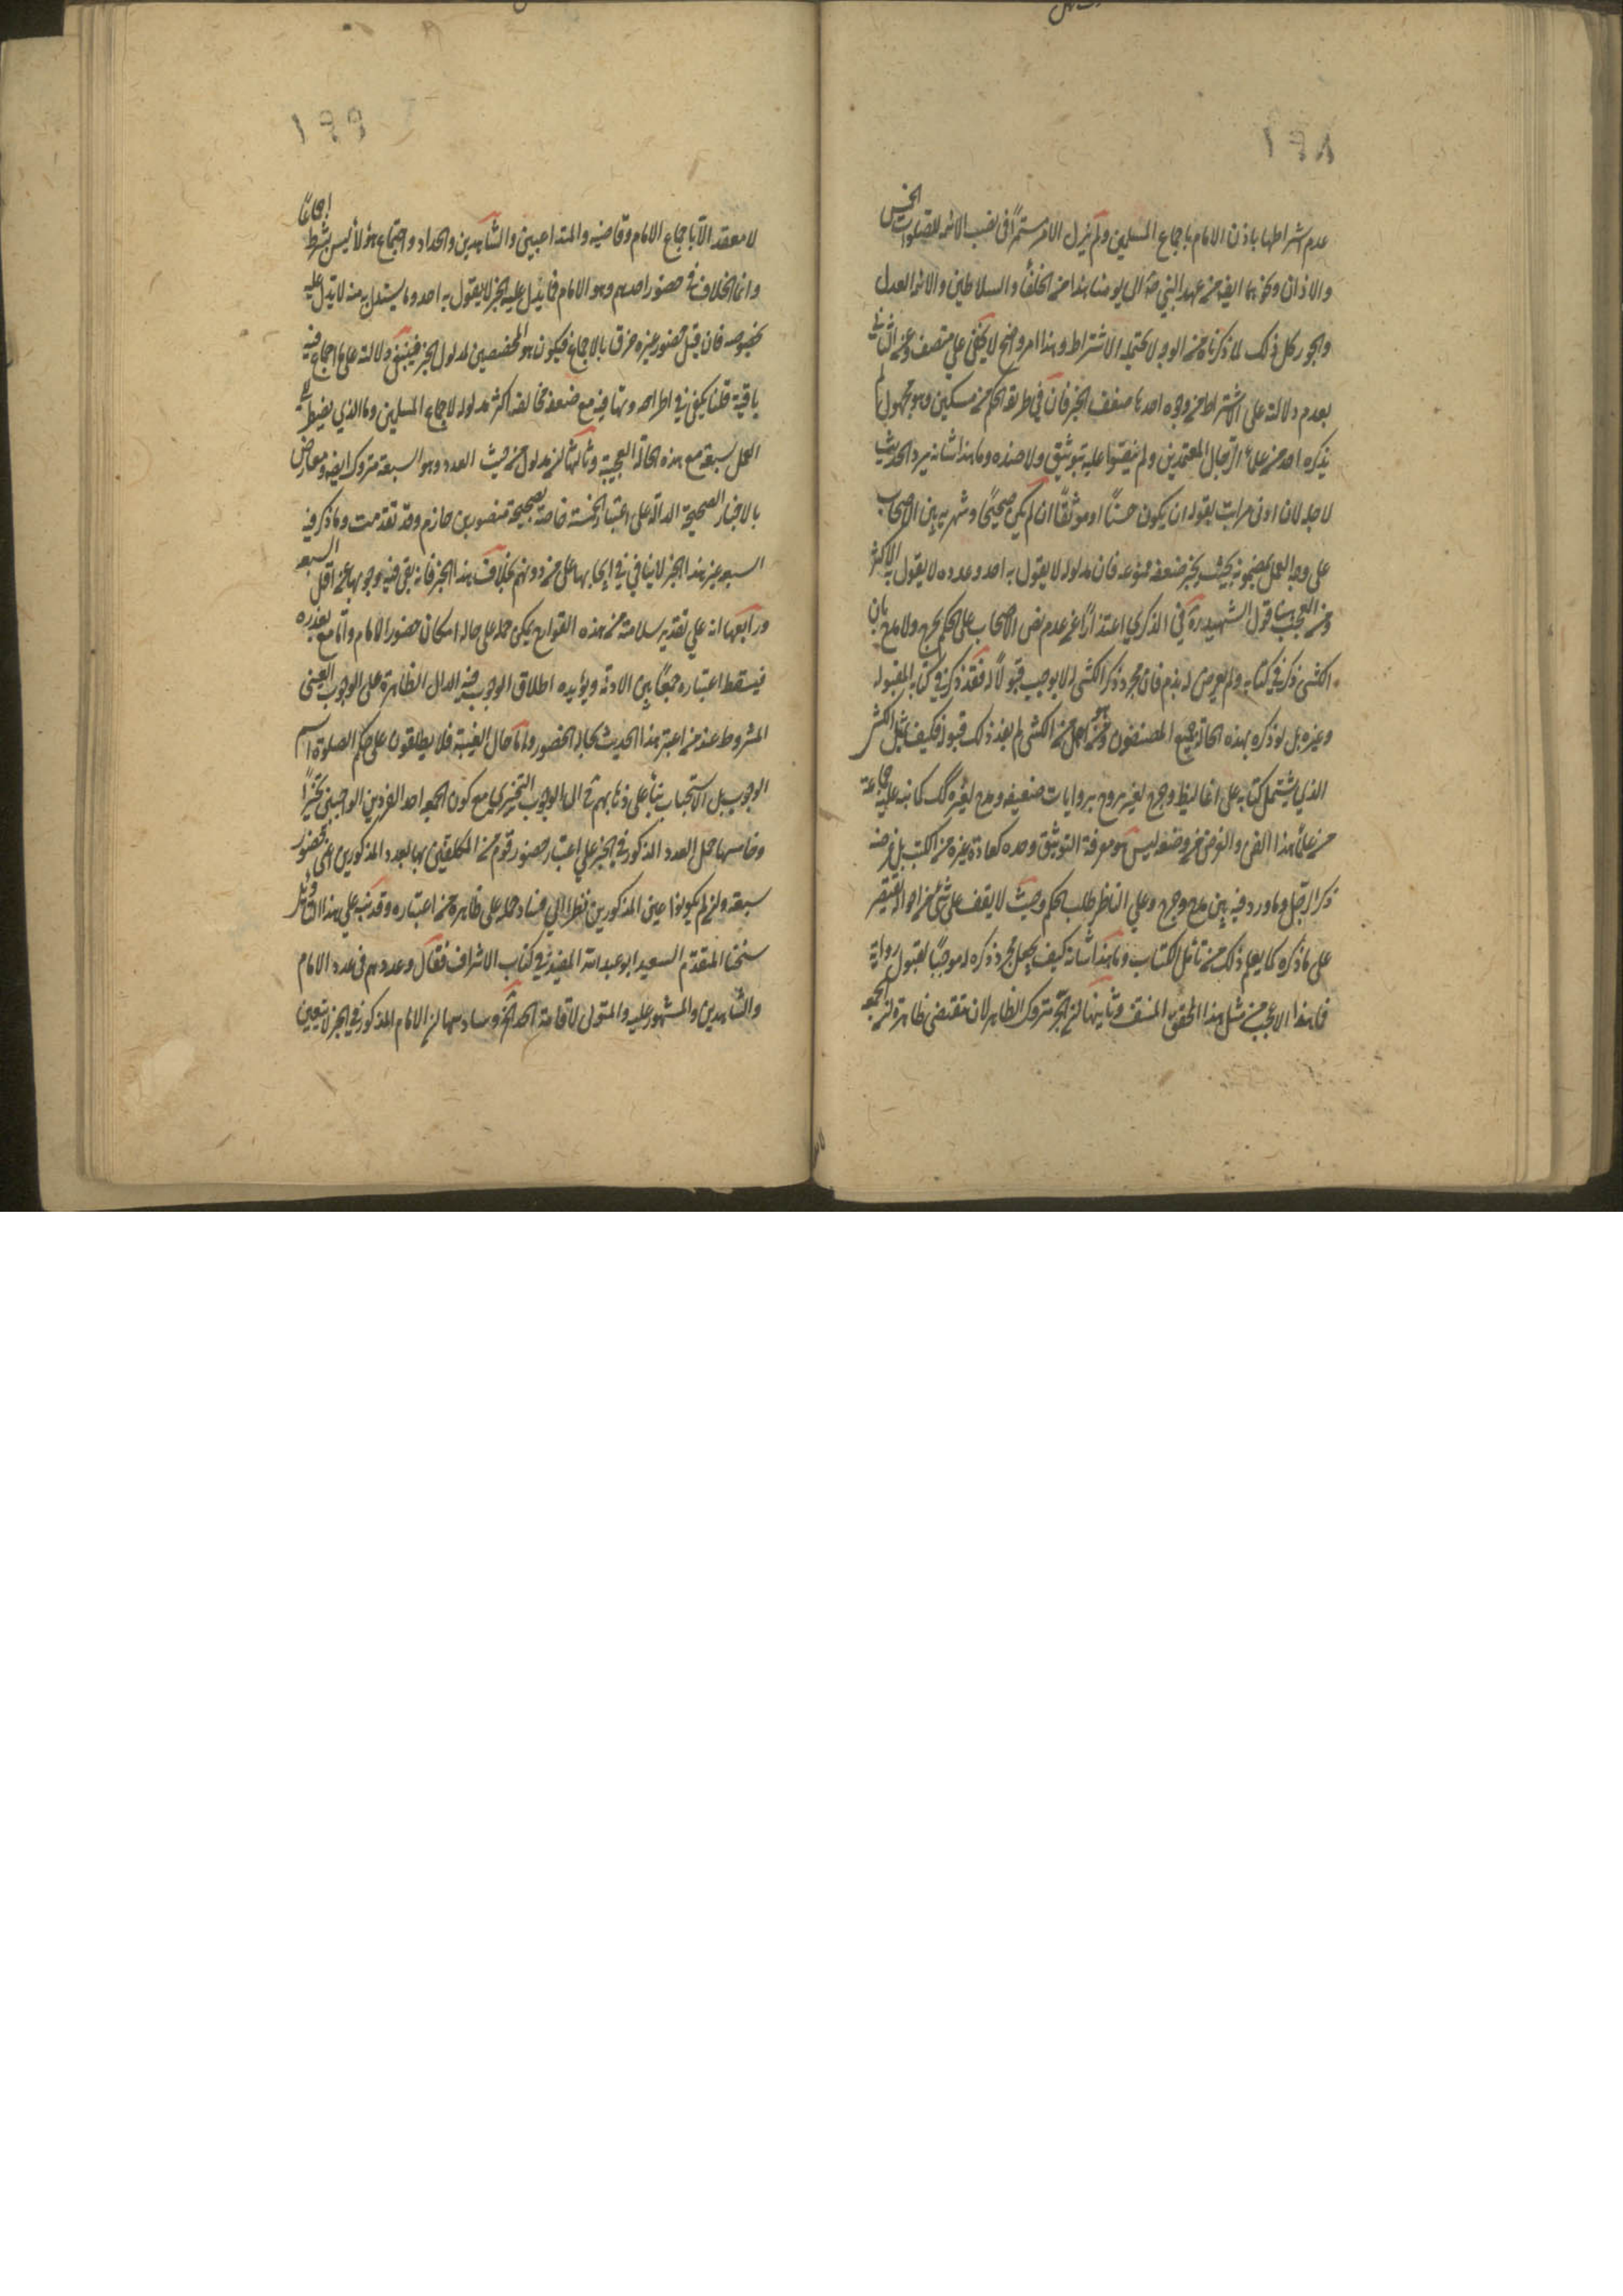 ١٩٨
عدم اشتراطها باذن الامام باجماع المسلمين ولم يزل الامر مستمرًا فى نصب الائمة للصلوات الخمس
والاذان ونحوهما ايضا من عهد النبي ص الى يومنا هذا من الخلفاء والسلاطين والائمة العدل
والجور كل ذلك لما ذكرناه من الوجه لا يحتمله الاشتراط وهذا امر واضح لا يخفى علي منصف وعن الثانى
بعدم دلالته على الاشتراط من وجوه احدها ضعف الخبر فان في طريقه الحكم بن مسكين وهو مجهول لم
يذكره احد من علماء الرجال المعتمدين ولم ينصوا عليه بتوثيق ولا ضده وما هذا شانه يرد الحديث
لاجله لان ادنى مراتب قبوله ان يكون حسنًا او موثقًا ان لم يكن صحيحًا وشهرته بين الاصحاب
على وجه العمل بمضمونه بحيث يجبر ضعفه ممنوعه فان مدلوله لا يقول به احد وعدده لا يقول به الاكثر
ومن العجب هنا قول الشهيد ره في الذكري اعتذارًا عن عدم نص الاصحاب على الحكم بجرح ولا مدح بان
الكشى ذكره في كتابه ولم يعرض له بذم فان مجرد ذكر الكشى له لا يوجب قبولًا له فقد ذكر في كتابه المقبول
وغيره بل لو ذكره بهذه الحالة جميع المصنفون ومن هو اجل من الكشى لم يفد ذلك قبوله فكيف بمثل الكشى
الذي يشتمل كتابه على اغاليط وجرح لغير مجروح بروايات ضعيفه ومدح لغيره كك كما نبه عليه جماعة
من علماء هذا الفن والغرض من وضعه ليس هو معرفة التوثيق وضده كعادة غيره من الكتب بل غرضه
ذكر الرجل وما ورد فيه من مدح وجرح وعلي الناظر طلب الحكم وحيث لا يقف على شئ من احواله يقتصر
على ما ذكره كما يعلم ذلك من تامل الكتاب وما هذا شانه كيف يجعل مجرد ذكره له موجبًا لقبول رواية
فا هذا الا عجب من مثل هذا المحقق المنقف وثانيها ان الخبر متروك الظاهر لان مقتضى ظاهره ان الجمعه
١٩٩
لا تنعقد الا باجماع الامام وقاضيه والمتداعيين والشاهدين والحداد واجتماع هؤلاء ليس بشرط اجماعًا
وانما الخلاف في حضور احدهم وهو الامام فما يدل عليه الخبر لا يقول به احد وما يستدل به منه لا يدل عليه
بخصوصه فان قيل حضور غيره خرق بالاجماع فيكون هو المخصص لمدلول الخبر فيبقى دلالته على ما لا اجماع فيه
باقية قلنا يكفى في اطراحه وتهافته مع ضعفه مخالفة اكثر مدلوله لاجماع المسلمين وما الذي يضطر الي
العمل ببعضه مع هذه الحالة العجيبة وثالثها ان مدلوله من حيث العدد وهو السبعة متروك ايضا ومعارض
بالاخبار الصحيحة الدالة على اعتبار الخمسة خاصة كصحيحة منصور بن حازم وقد تقدمت وما ذكر فيه
السبعه غير هذا الخبر لا ينافي نفي ايجابها على من دونهم بخلاف هذا الخبر فانه نفى فيه وجوبها عن اقل السبعه
ورابعها انه على تقدير سلامته من هذه القوادح يمكن حمله على حالة امكان حضور الامام واما مع تعذره
فيسقط اعتباره جمعًا بين الادلة ويؤيده اطلاق الوجوب فيه الدال الظاهره على الوجوب العينى
المشروط عند من اعتبر هذا الحديث بحالة الحضور واما حال الغيبة فلا يطلقون على حكم الصلوة اسم
الوجوب بل الاستحباب بناء على ذهابهم ح الى الوجوب التخييري مع كون الجمعه احد الفردين الواجبين تخييرًا
وخامسها حمل العدد المذكور في الخبر علي اعتبار حضور قوم من المكلفين بها بعدد المذكورين اعنى حضور
سبعة وان لم يكونوا عين المذكورين نظرا الى فساد حمله على ظاهره من اعتباره وقد نبه علي هذا التاويل
شيخنا المتقدم السعيد ابو عبد الله المفيد في كتاب الاشراف فقال وعددهم فى عدد الامام
والشاهدين والمشهود عليه والمتولى لاقامة الحد الخ وسادسها ان الامام المذكور في الخبر لا يتعين